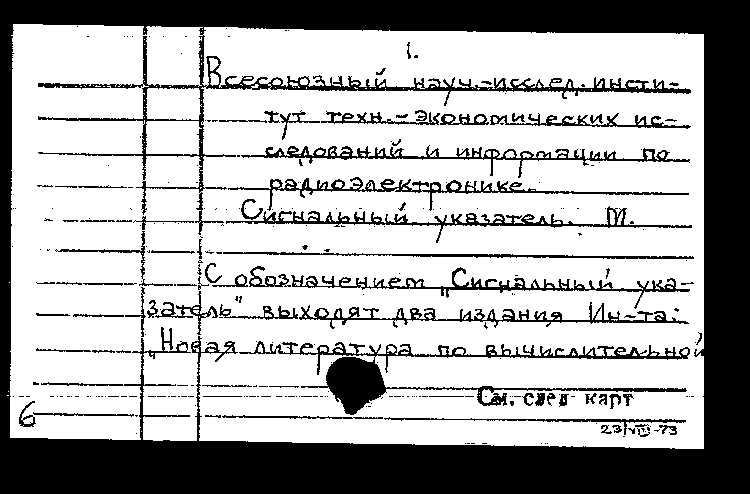 1.
Всесоюзный науч.-исслед. инсти-
тут техн.-экономических ис-
следований и информации по
радиоэлектронике.
Сигнальный указатель. М.
С обозначением „Сигнальный ука-
затель" выходят два издания Ин-та:
„Новая литература по вычислительной
См. след карт
6
23/VIII-73